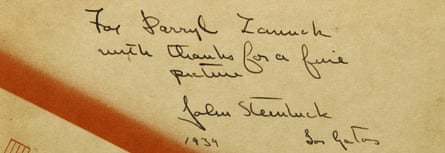 For Darryl Zanuck
with thanks for a fine
picture
John Steinbeck
1939 Los Gatos